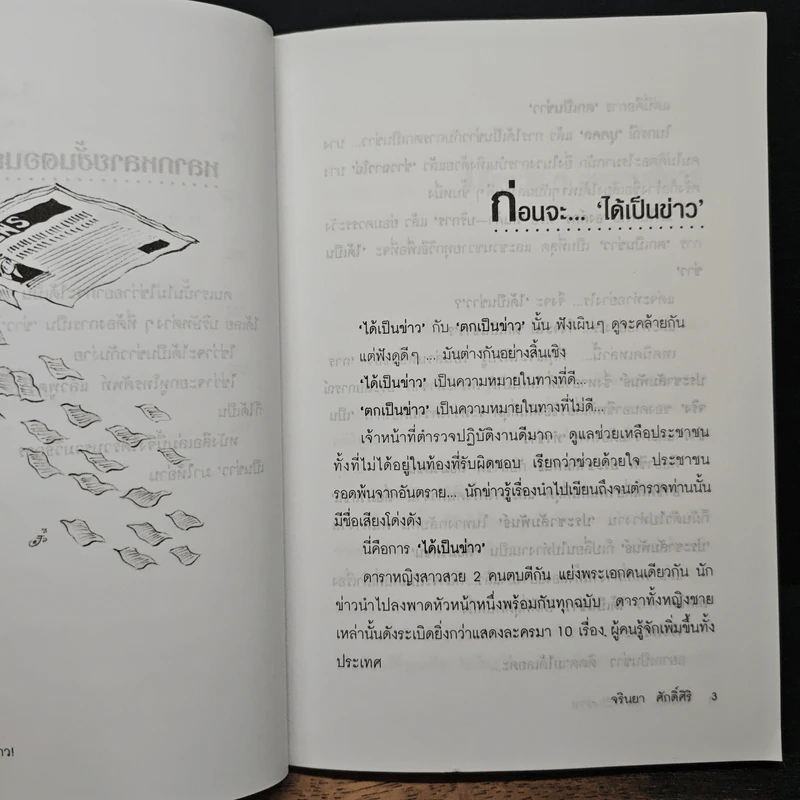 NS
าว!
ก่อนจะ... 'ได้เป็นข่าว'
'ได้เป็นข่าว' กับ 'ตกเป็นข่าว' นั้น ฟังเผินๆ ดูจะคล้ายกัน
แต่ฟังดูดีๆ ... มันต่างกันอย่างสิ้นเชิง
'ได้เป็นข่าว' เป็นความหมายในทางที่ดี...
'ตกเป็นข่าว' เป็นความหมายในทางที่ไม่ดี...
เจ้าหน้าที่ตำรวจปฏิบัติงานดีมาก ดูแลช่วยเหลือประชาชน
ทั้งที่ไม่ได้อยู่ในท้องที่รับผิดชอบ เรียกว่าช่วยด้วยใจ ประชาชน
รอดพ้นจากอันตราย... นักข่าวรู้เรื่องนำไปเขียนถึงจนตำรวจท่านนั้น
มีชื่อเสียงโด่งดัง
นี่คือการ 'ได้เป็นข่าว'
ดาราหญิงสาวสวย 2 คนตบตีกัน แย่งพระเอกคนเดียวกัน นัก
ข่าวนำไปลงพาดหัวหน้าหนึ่งพร้อมกันทุกฉบับ ดาราทั้งหญิงชาย
เหล่านั้นดังระเบิดยิ่งกว่าแสดงละครมา 10 เรื่อง ผู้คนรู้จักเพิ่มขึ้นทั้ง
ประเทศ
จรินยา ศักดิ์ศิริ 3